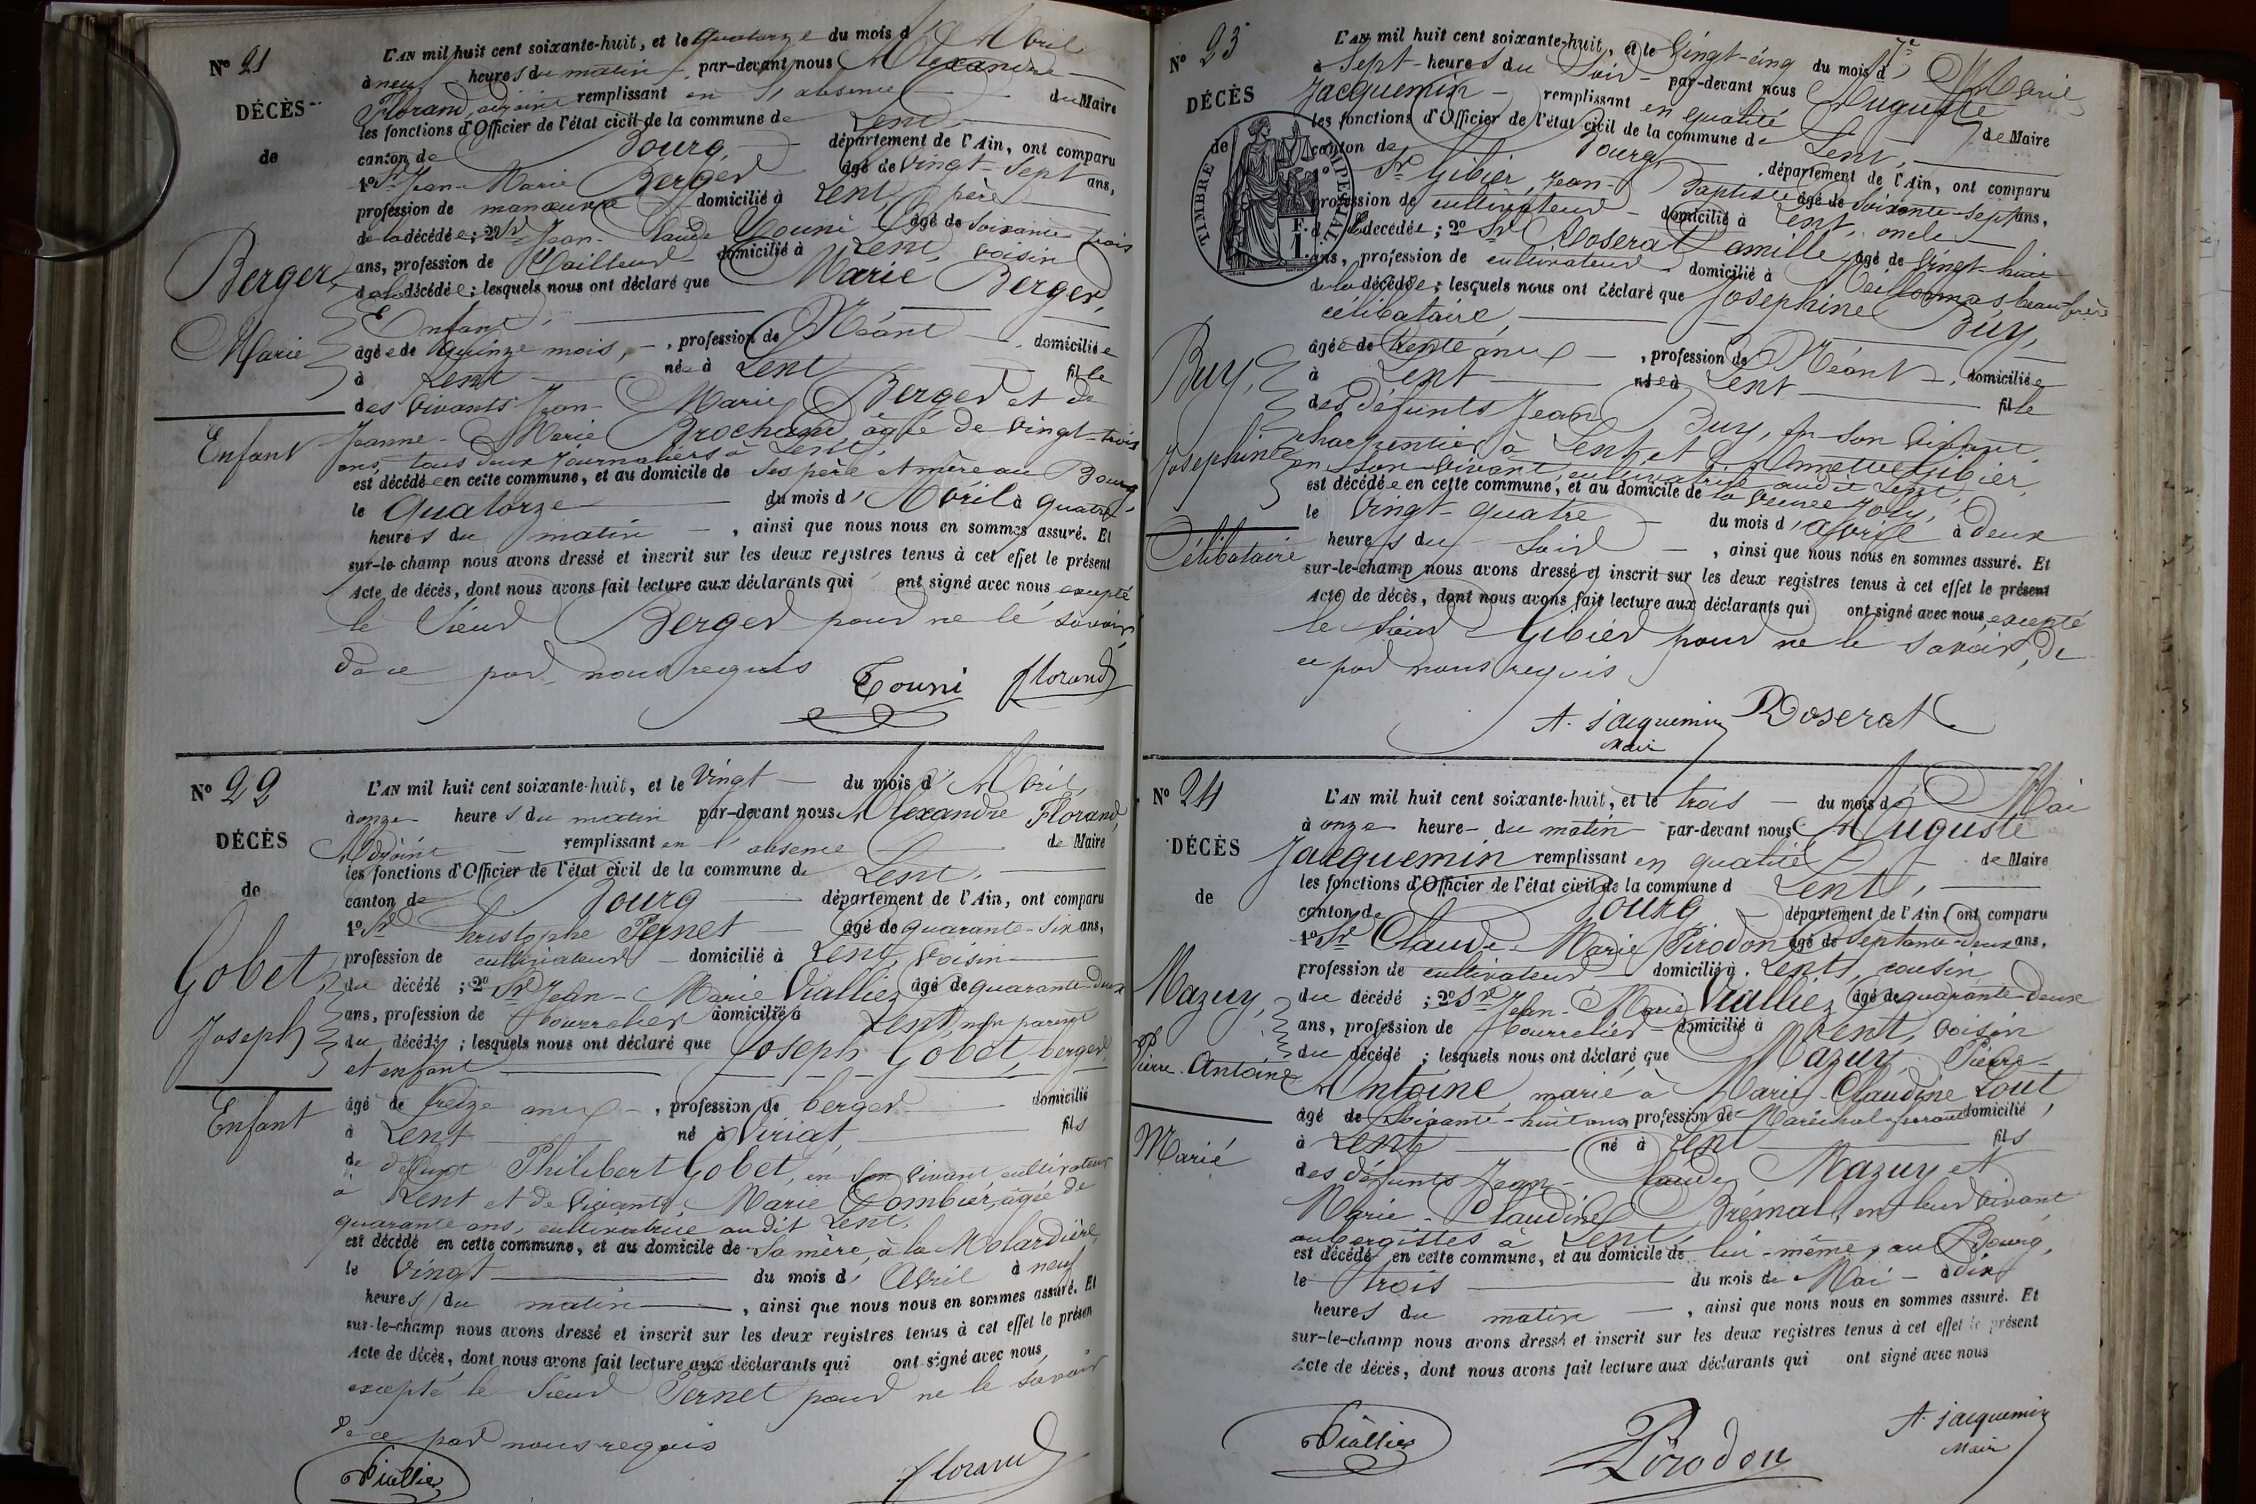 N° 21
DÉCÈS
de
Berger,
Marie
Enfant
L'AN mil huit cent soixante-huit, et le quatorze du mois d'Avril
à neuf heures du matin, par-devant nous Alexandre
Florand, adjoint remplissant en l'absence du Maire
les fonctions d'Officier de l'état civil de la commune de Lent,
canton de Bourg, département de l'Ain, ont comparu
1° Sr Jean-Marie Berger âgé de vingt-sept ans,
profession de manœuvre domicilié à Lent, père
de la décédée; 2° Sr Jean-Claude Touni âgé de soixante-trois
ans, profession de Tailleur domicilié à Lent, voisin
de la décédée; lesquels nous ont déclaré que Marie Berger,
Enfant,
âgée de quinze mois, profession de Néant, domiciliée
à Lent née à Lent fille
des vivants Jean-Marie Berger et de
Jeanne-Marie Brochand, âgée de vingt-trois
ans, tous deux journaliers à Lent,
est décédée en cette commune, et au domicile de ses père et mère au Bourg
le quatorze du mois d'Avril à quatre
heures du matin, ainsi que nous nous en sommes assuré. Et
sur-le-champ nous avons dressé et inscrit sur les deux registres tenus à cet effet le présent
Acte de décès, dont nous avons fait lecture aux déclarants qui ont signé avec nous excepté
le Sieur Berger pour ne le savoir,
de ce par nous requis
Touni Florand
N° 22
DÉCÈS
de
Gobet,
Joseph
Enfant
L'AN mil huit cent soixante-huit, et le vingt du mois d'Avril,
à onze heures du matin par-devant nous Alexandre Florand,
Adjoint remplissant en l'absence de Maire
les fonctions d'Officier de l'état civil de la commune de Lent,
canton de Bourg département de l'Ain, ont comparu
1° Sr Christophe Pernet âgé de quarante-six ans,
profession de cultivateur domicilié à Lent, voisin
du décédé; 2° Sr Jean-Marie Viallier âgé de quarante-deux
ans, profession de Bourrelier domicilié à Lent, non parent
du décédé; lesquels nous ont déclaré que Joseph Gobet, berger
et enfant
âgé de treize ans, profession de berger domicilié
à Lent né à Viriat, fils
de défunt Philibert Gobet, en son vivant cultivateur
à Lent et de vivante Marie Combier, âgée de
quarante ans, cultivatrice audit Lent,
est décédé en cette commune, et au domicile de sa mère, à la Molardière,
le vingt du mois d'Avril à neuf
heures du matin, ainsi que nous nous en sommes assuré. Et
sur-le-champ nous avons dressé et inscrit sur les deux registres tenus à cet effet le présen
Acte de décès, dont nous avons fait lecture aux déclarants qui ont signé avec nous,
excepté le Sieur Pernet pour ne le savoir
de ce par nous requis
Viallier Florand
N° 23
DÉCÈS
de
TIMBRE IMPÉRIAL
1 F.
Buy,
Josephine
Célibataire
L'AN mil huit cent soixante-huit, et le vingt-cinq du mois d'Avril
à sept heures du soir par-devant nous Auguste
Jacquemin remplissant en qualité de Maire
les fonctions d'Officier de l'état civil de la commune de Lent,
canton de Bourg, département de l'Ain, ont comparu
1° Sr Gibier, Jean-Baptiste âgé de soixante-sept ans,
profession de cultivateur domicilié à Lent, oncle
d la décédée; 2° Sr Doserat Camille, âgé de vingt-huit
ans, profession de cultivateur domicilié à Meillonnas, beau-frère
de la décédée; lesquels nous ont déclaré que Josephine Buy,
célibataire,
âgée de trente ans, profession de Néant, domiciliée
à Lent née à Lent fille
des défunts Jean Buy, en son vivant
charpentier à Lent, et Annette Gibier,
en son vivant, cultivatrice audit Lent,
est décédée en cette commune, et au domicile de la veuve Joly,
le vingt-quatre du mois d'avril à deux
heures du soir, ainsi que nous nous en sommes assuré. Et
sur-le-champ nous avons dressé et inscrit sur les deux registres tenus à cet effet le présent
Acte de décès, dont nous avons fait lecture aux déclarants qui ont signé avec nous, excepté
le Sieur Gibier pour ne le savoir, de
ce par nous requis
A. Jacquemin Doserat
Maire
N° 24
DÉCÈS
de
Mazuy,
Pierre-Antoine
Marié
L'AN mil huit cent soixante-huit, et le trois du mois de Mai
à onze heure du matin par-devant nous Auguste
Jacquemin remplissant en qualité de Maire
les fonctions d'Officier de l'état civil de la commune d Lent,
canton de Bourg département de l'Ain, ont comparu
1° Sr Claude-Marie Pirodon âgé de septante-deux ans,
profession de cultivateur domicilié à Lent, cousin
du décédé; 2° Sr Jean-Marie Viallier âgé de quarante-deux
ans, profession de Bourrelier domicilié à Lent, voisin
du décédé; lesquels nous ont déclaré que Mazuy, Pierre-
Antoine, marié à Marie-Claudine Lout
âgé de soixante-huit ans, profession de Maréchal-ferrant domicilié,
à Lent né à Lent fils
des défunts Jean-Claude Mazuy et
Marie-Claudine Brémal, en leur vivant
aubergistes à Lent,
est décédé en cette commune, et au domicile de lui-même, au Bourg,
le trois du mois de Mai à dix
heures du matin, ainsi que nous nous en sommes assuré. Et
sur-le-champ nous avons dressé et inscrit sur les deux registres tenus à cet effet le présent
Acte de décès, dont nous avons fait lecture aux déclarants qui ont signé avec nous
Viallier Pirodon A. Jacquemin
Maire